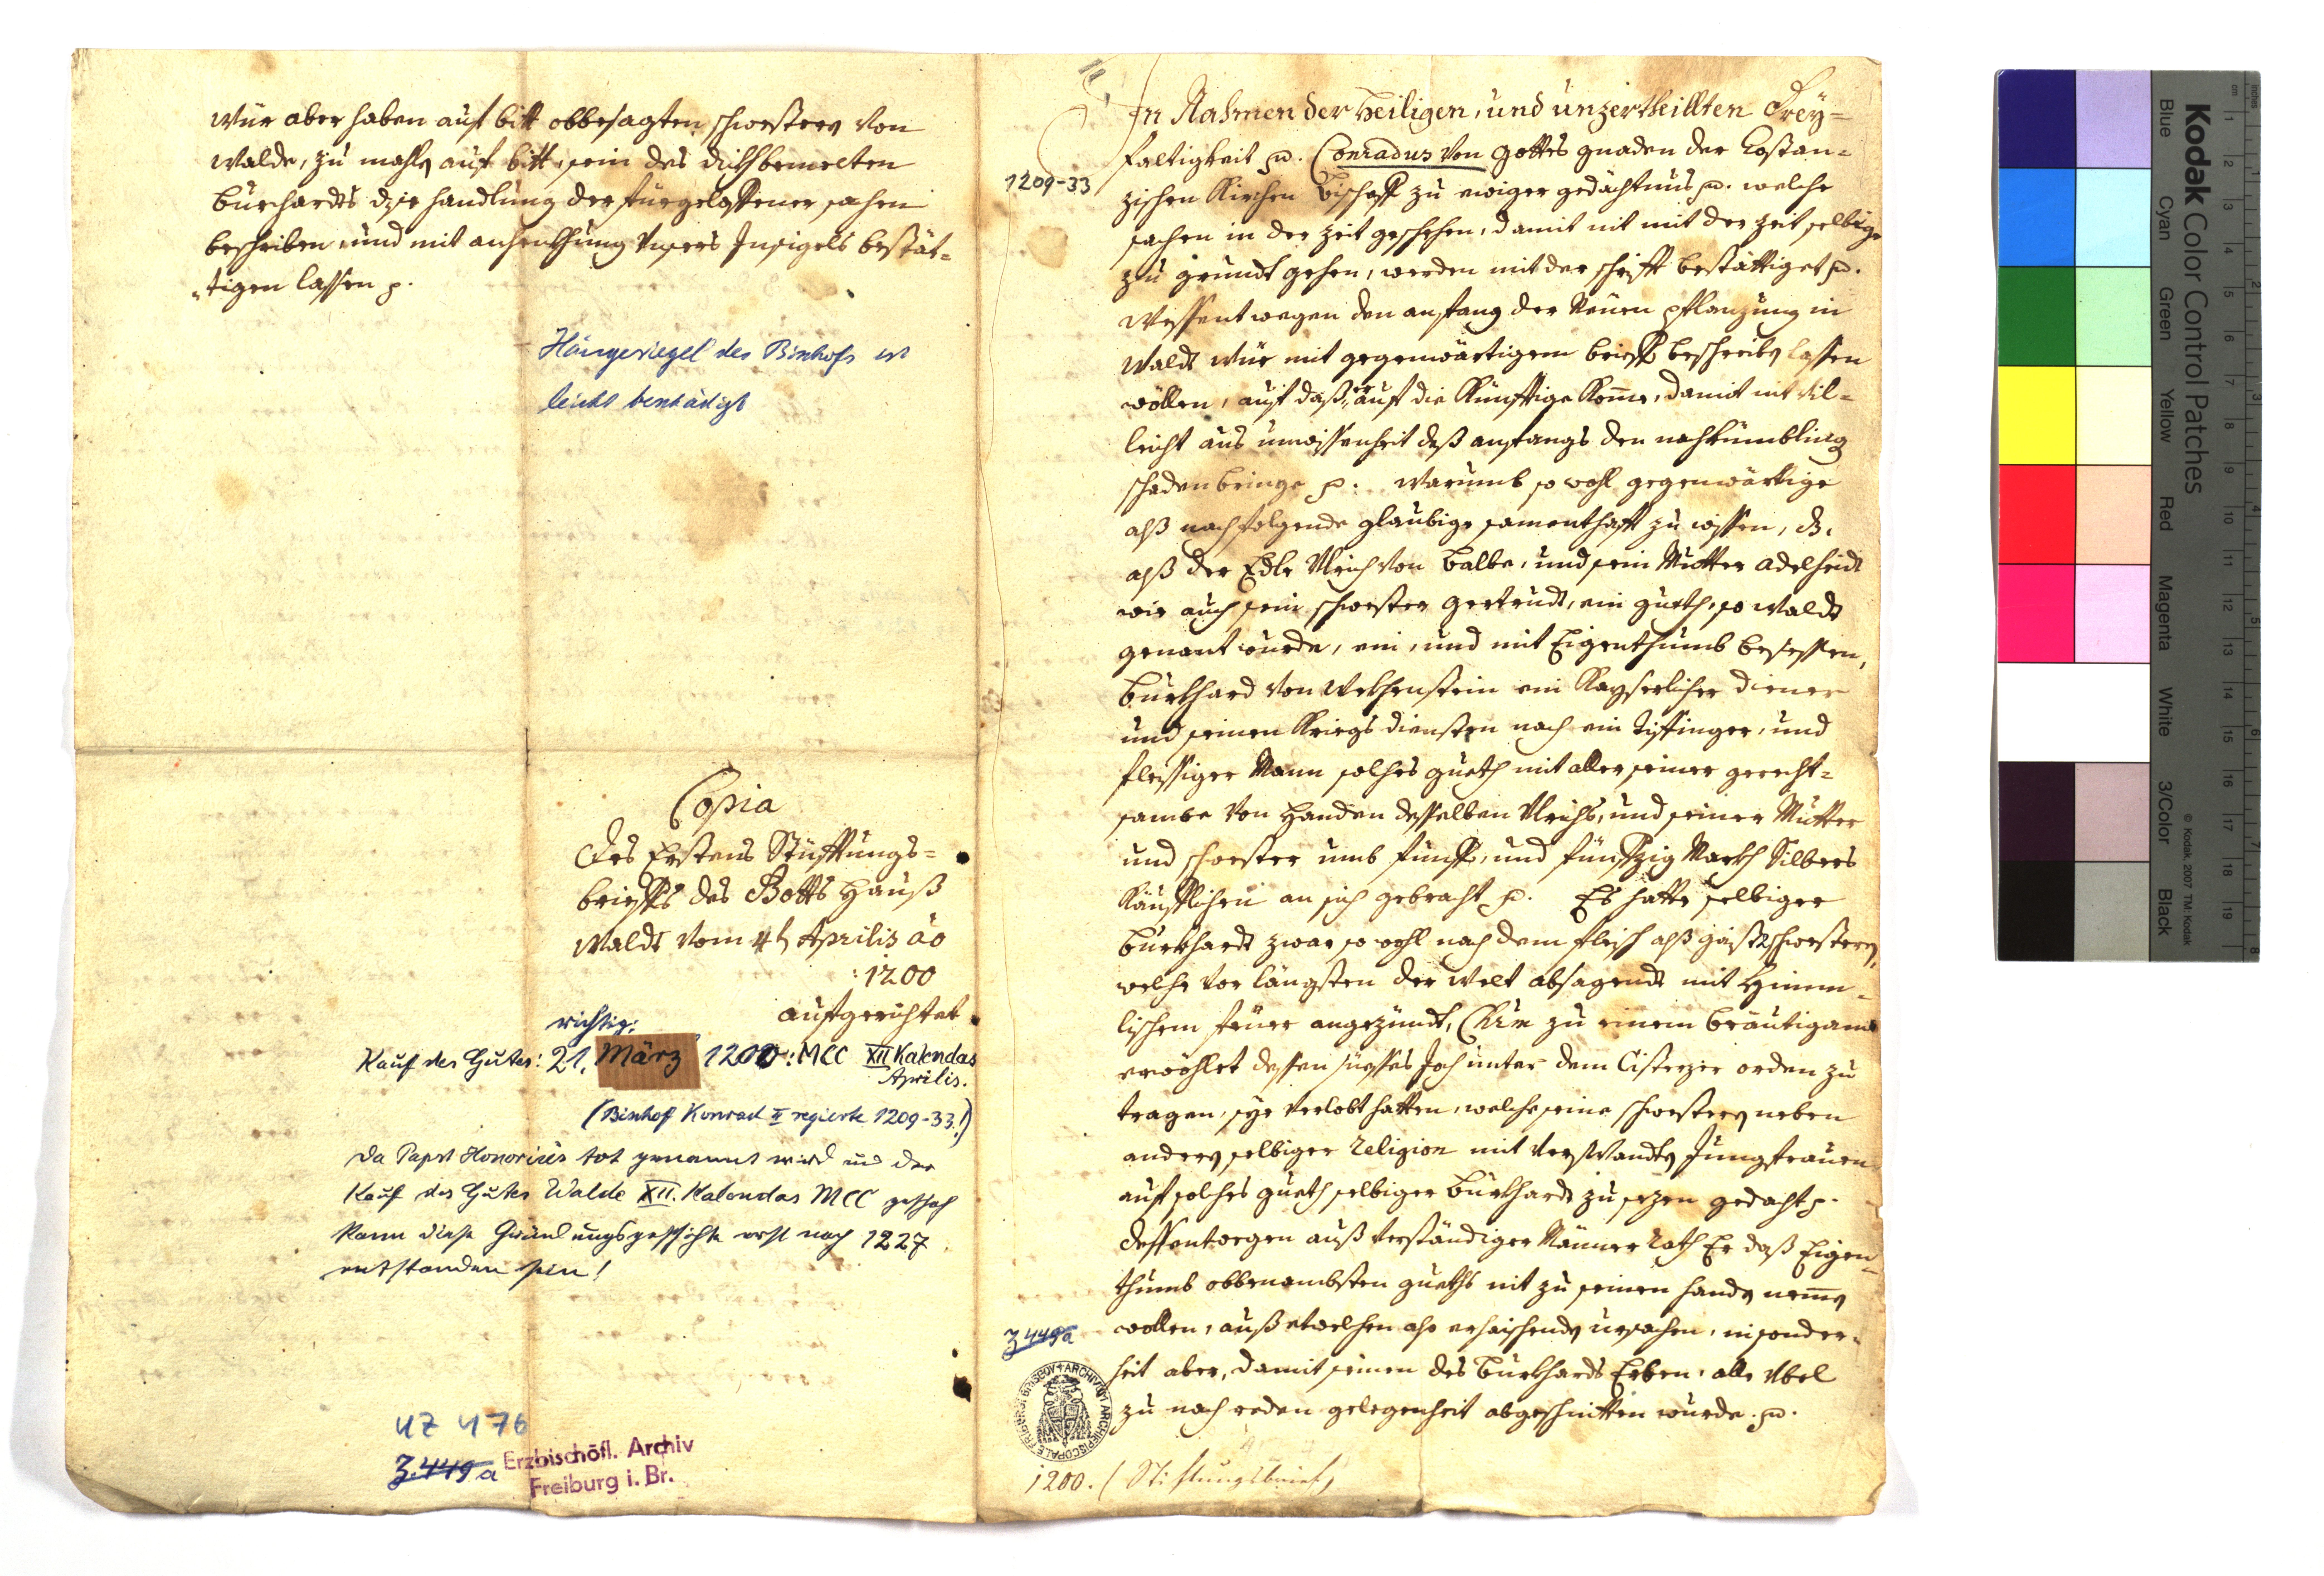 wür aber haben auf bitt obbesagten schwestern von
Walde, zu mahln auf bitt sein des dickhbemelten
Burchardts dise handlung der fürgeloffener sachen
beschriben und mit anhenkhung Unsers Insigels bestät=
tigen lassen p.
Hängesiegel des Bischofs ist
leicht beschädigt
Copia
Des Erstens Stüfftungs=
brieffs des Gotts Hauß
Waldt vom 4t Aprilis ao
:1200
aufgerichtet
richtig:
Kauf des Gutes: 21. März 1200: MCC XII Kalendas
Aprilis.
(Bischof Konrad II regierte 1209-33!)
Da Papst Honorius tot genannt wird und der
Kauf des Gutes Walde XII. Kalendas MCC geschah
kann diese Gründungsgeschichte erst nach 1227
entstanden sein!
UZ 476
3.449a
Erzbischöfl. Archiv
Freiburg i. Br.
In Nahmen der Heiligen, und unzertheillten Drey=
faltigkeit p. Conradus von gottes gnaden der Costan=
1209-33
zischen Kirchen Bischoff zu ewiger gedächtnus p. welche
sachen in der zeit geschehen, damit nit mit der zeit selbige
zu grundt gehen, werden mit der schrifft bestättiget p.
Wessentwegen den anfang der Neuen pflanzung in
Waldt wür mit gegenwärtigem brieff beschreiben lassen
wöllen, auf daß er auf die künfftige komme, damit nit vil=
leicht aus unwissenheit deß anfangs den nachkümbling
schaden bringe p. Warumb so wohl gegenwärtige
alß nachfolgende glaubige samenthafft zu wissen, dz.
alß der Edle Ulrich von Balbe, und sein Mutter Adelheidt
wie auch sein schwester Gertrudt, ein gueth, so Waldt
genant wurde, ein, und mit Eigenthumb besessen,
Burkhard von Wekhenstein ein Kayserlicher diener
und seinen Kriegs diensten nach ein tiffinger, und
fleissiger Mann solches gueth mit aller seiner gerecht=
sambe von Handen desselben Ulrichs, und seiner Mutter
und schwester umb fünff, und fünffzig Markh Silbers
käufflichen an sich gebracht p. Es hatte selbiger
Burkhardt zwar so wohl nach dem fleisch alß geist 2 schwestern,
welche vor längsten der Welt absagendt mit Himm=
lischem feuer angezündt, Chrm zu einem bräutigamb
erwöhlet dessen süesses Joch unter dem Cisterzer orden zu
tragen, sye verlobt hatten, welche seine schwestern neben
andern selbiger Religion mit verwandten Jungfrauen
auf solches gueth selbiger Burkhardt zu sezen gedacht p.
dessentwegen auß verständiger Männer rath Er daß Eigen=
thumb obbenambsten gueths nit zu seinen handen nemmen
3449a
wollen, auß etwelchen also erhaischenden ursachen, insonder=
heit aber, damit seinen des Burkhards Erben alle Übel
zu nachreden gelegenheit abgeschnitten wurde. p.
ARCHIVUM ARCHIEPISCOPALE FRIBURGI BRISGOV
1200. (Stiftungsbrief)
Kodak Color Control Patches
© Kodak, 2007 TM: Kodak
Blue
Cyan
Green
Yellow
Red
Magenta
White
3/Color
Black